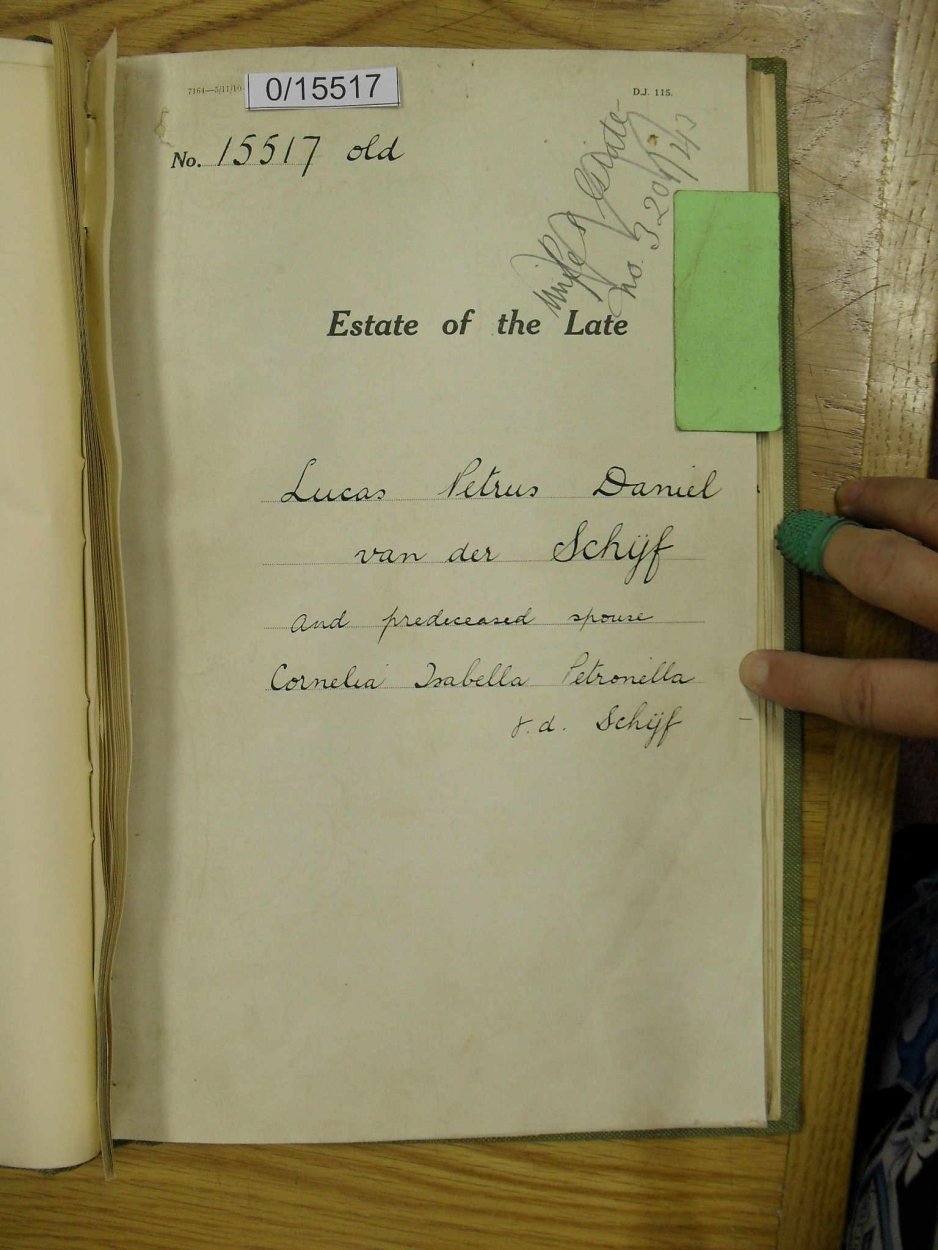 7164—5/11/10-
0/15517
D.J. 115.
No. 15517 old
Estate
no. 3
Estate of the Late
Lucas Petrus Daniel
van der Schijf
and predeceased spouse
Cornelia Isabella Petronella
v.d. Schijf